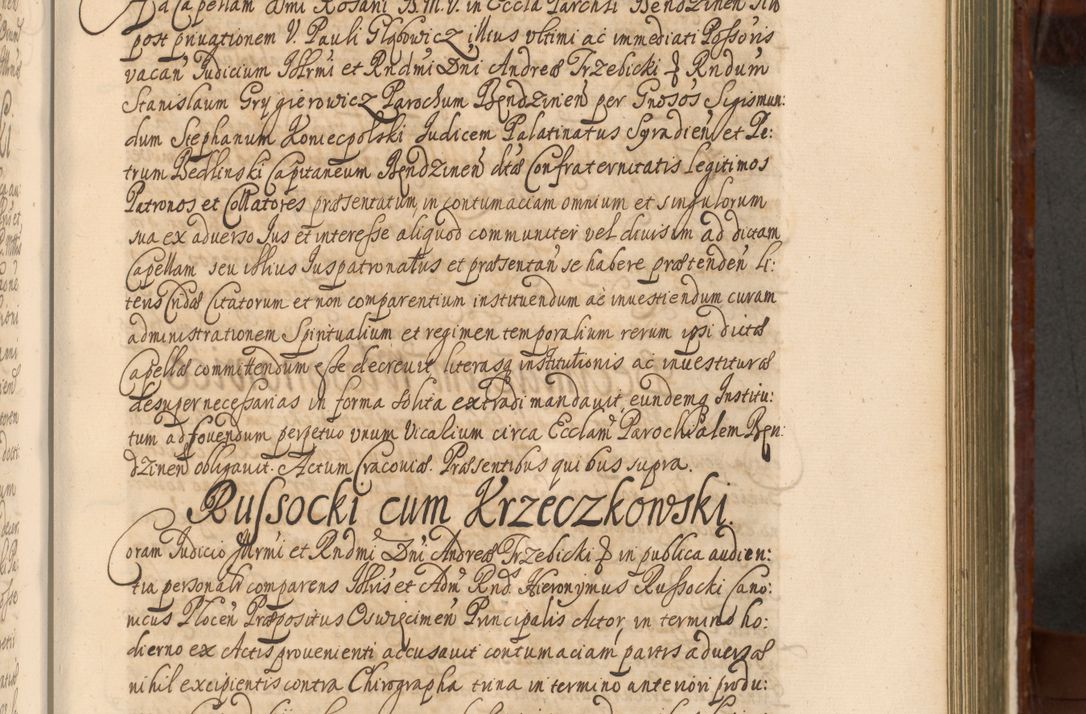 Ad Capellam Smi Rosarii B. M. V. in Eccla Parchli Bendzinen sitā
post privationem V. Pauli Głębowicz illius ultimi ac immediati Possoris
vacan̄ Iudicium Illrmi et Rndmi Dni Andreæ Trzebicki Rndum
Stanislaum Grygierowicz Parochum Bendzinen̄ per Gnosos Sigismun:
dum Stephanum Koniecpolski Iudicem Palatinatus Syradien̄ et Pe:
trum Bedlinski Capitaneum Bendzinen̄ dtæ Confraternitatis legitimos
Patronos et Collatores præsentatum, in contumaciam omnium et singulorum
sua ex adverso Ius et interesse aliquod communiter vel divisim ad dictam
Capellam seu illius Iuspatronatus et præsentan̄ se habere prætenden̄ li:
teris Cridæ Citatorum et non comparentium instituendum ac investiendum curam
administrationem Spiritualium et regimen temporalium rerum ipsi dictæ
Capellæ committendum esse decrevit literasq institutionis ac investituræ
desuper necessarias in forma solita extradi mandavit, eundemq Institu:
tum ad fovendum perpetuo unum Vicalium circa Ecclam Parochialem Ben:
dzinen̄ obligavit. Actum Cracoviæ. Præsentibus quibus supra.
Russocki cum Krzeczkowski.
Coram Iudicio Illrmi et Rndmi Dni Andreæ Trzebicki in publica audien:
tia personalr comparens Illris et Adm Rnds Hieronymus Russocki Cano:
nicus Plocen̄ Præpositus Oswięcimen̄ Principalis Actor, in termino ho:
dierno ex Actis provenienti accusavit contumaciam partis adversæ
nihil excipientis contra Chirographa trina in termino anteriori produ: